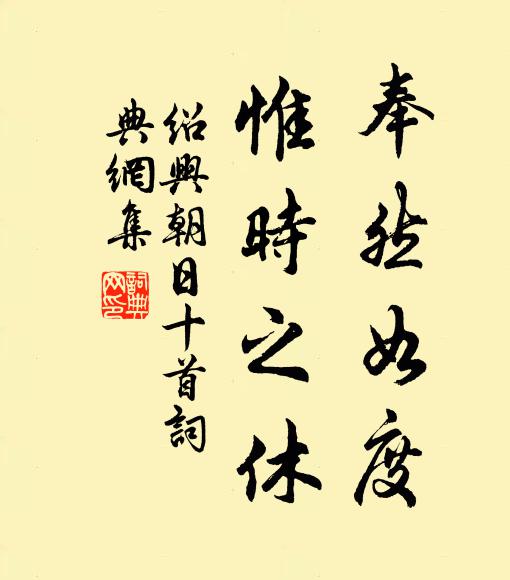 奉然如度
惟時之休
紹興朝日十首詞
典網集
詞典
网印